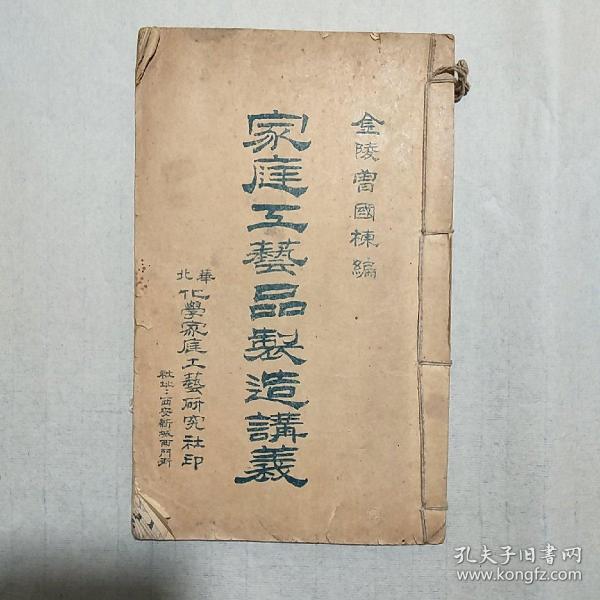 金陵曾國棟編
家庭工藝品製造講義
華北化學家庭工藝研究社印
社址：西安新城西門街
孔夫子旧书网
www.kongfz.com